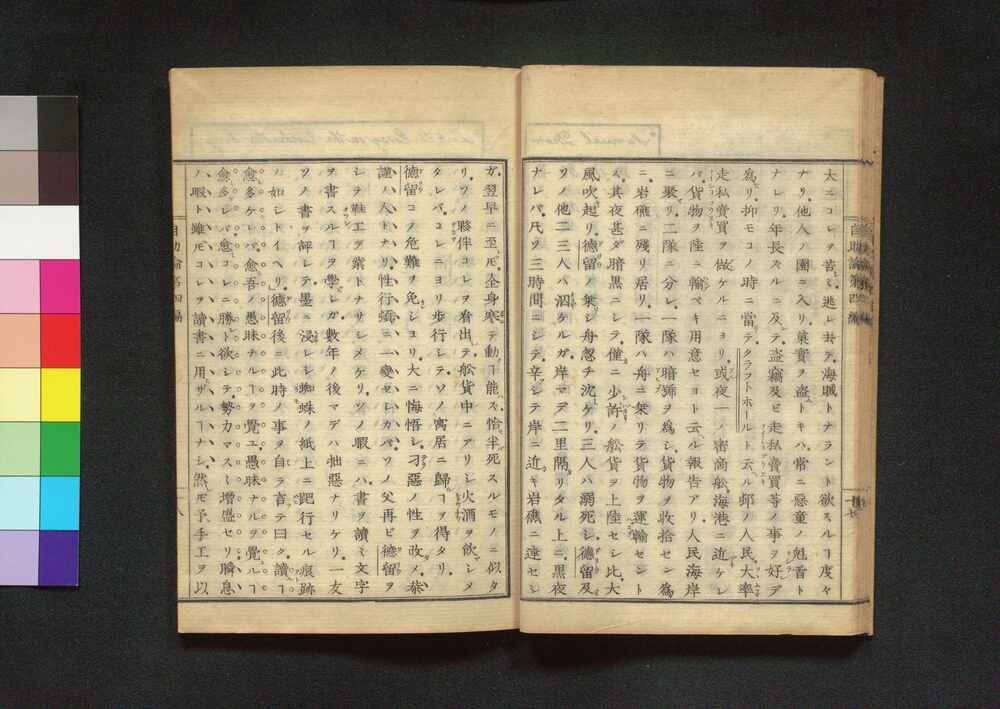 大ニコレヲ苦ミ逃レ去テ海賊トナラント欲スルヿ度々
ナリ他人ノ園ニ入リ菓實ヲ盗トキハ常ニ惡童ノ魁首ト
ナレリ年長スルニ及テ盗竊及ビ走私賣買等ノ事ヲ好デ
爲リ抑モコノ時ニ當テクラフトホールト云ル邨ノ人民大率
走私賣買ヲ做ケルニヨリ或夜一ノ密商船海港ニ近ケレ
バ貨物ヲ陸ニ輸ベキ用意セヨト云ル報告アリ人民海岸
ニ聚リ二隊ニ分レ一隊ハ暗號ヲ爲シ貨物ヲ收拾セン爲
ニ岩礁ニ殘リ居リ一隊ハ舟ニ乗リテ貨物ヲ運輸セント
ス其夜甚ダ暗黒ニシテ僅ニ少許ノ船貨ヲ上陸セシ比大
風吹起リ德留ノ乗シ舟忽チ沈ケリ三人ハ溺死シ德留及
ソノ他二三人ハ泅ケルガ岸マデ二里隔リタル上ニ黒夜
ナレバ凡ソ三時間ニシテ辛シテ岸ニ近キ岩礁ニ達セシ
ガ翌早ニ至モ全身寒テ動ヿ能ズ恰半死スルモノニ似タ
リソノ夥伴コレヲ看出テ船貨中ニアリシ火酒ヲ飲シメ
タレバコレニヨリ歩行シテソノ寓居ニ歸ヿヲ得タリ
德留コノ危難ヲ免シヨリ大ニ悔悟シ刁惡ノ性ヲ改メ恭
謹ハ人トナリ性行頓ニ一變セシカバソノ父再ビ德留ヲ
シテ鞋工ヲ業トナサシメケリソノ暇ニハ書ヲ讀ミ文字
ヲ書スルヿヲ學シガ數年ノ後マデハ拙惡ナリケリ一友
ソノ書ヲ評シテ墨ニ浸レシ蜘蛛ノ紙上ニ跁行セル痕跡
ノ如シトイヘリ德留後ニ此時ノ事ヲ自ラ言テ曰ク讀ヿ
愈多ケレバ愈吾ノ愚昧ナルヿヲ覺ユ愚昧ナルヲ覺ルヿ
愈多レバ愈コレニ勝ト欲シテ勢力マスマス增盛セリ瞬息
ノ暇ト雖モコレヲ讀書ニ用ザルヿナシ然モ予手工ヲ以
自助論第四編